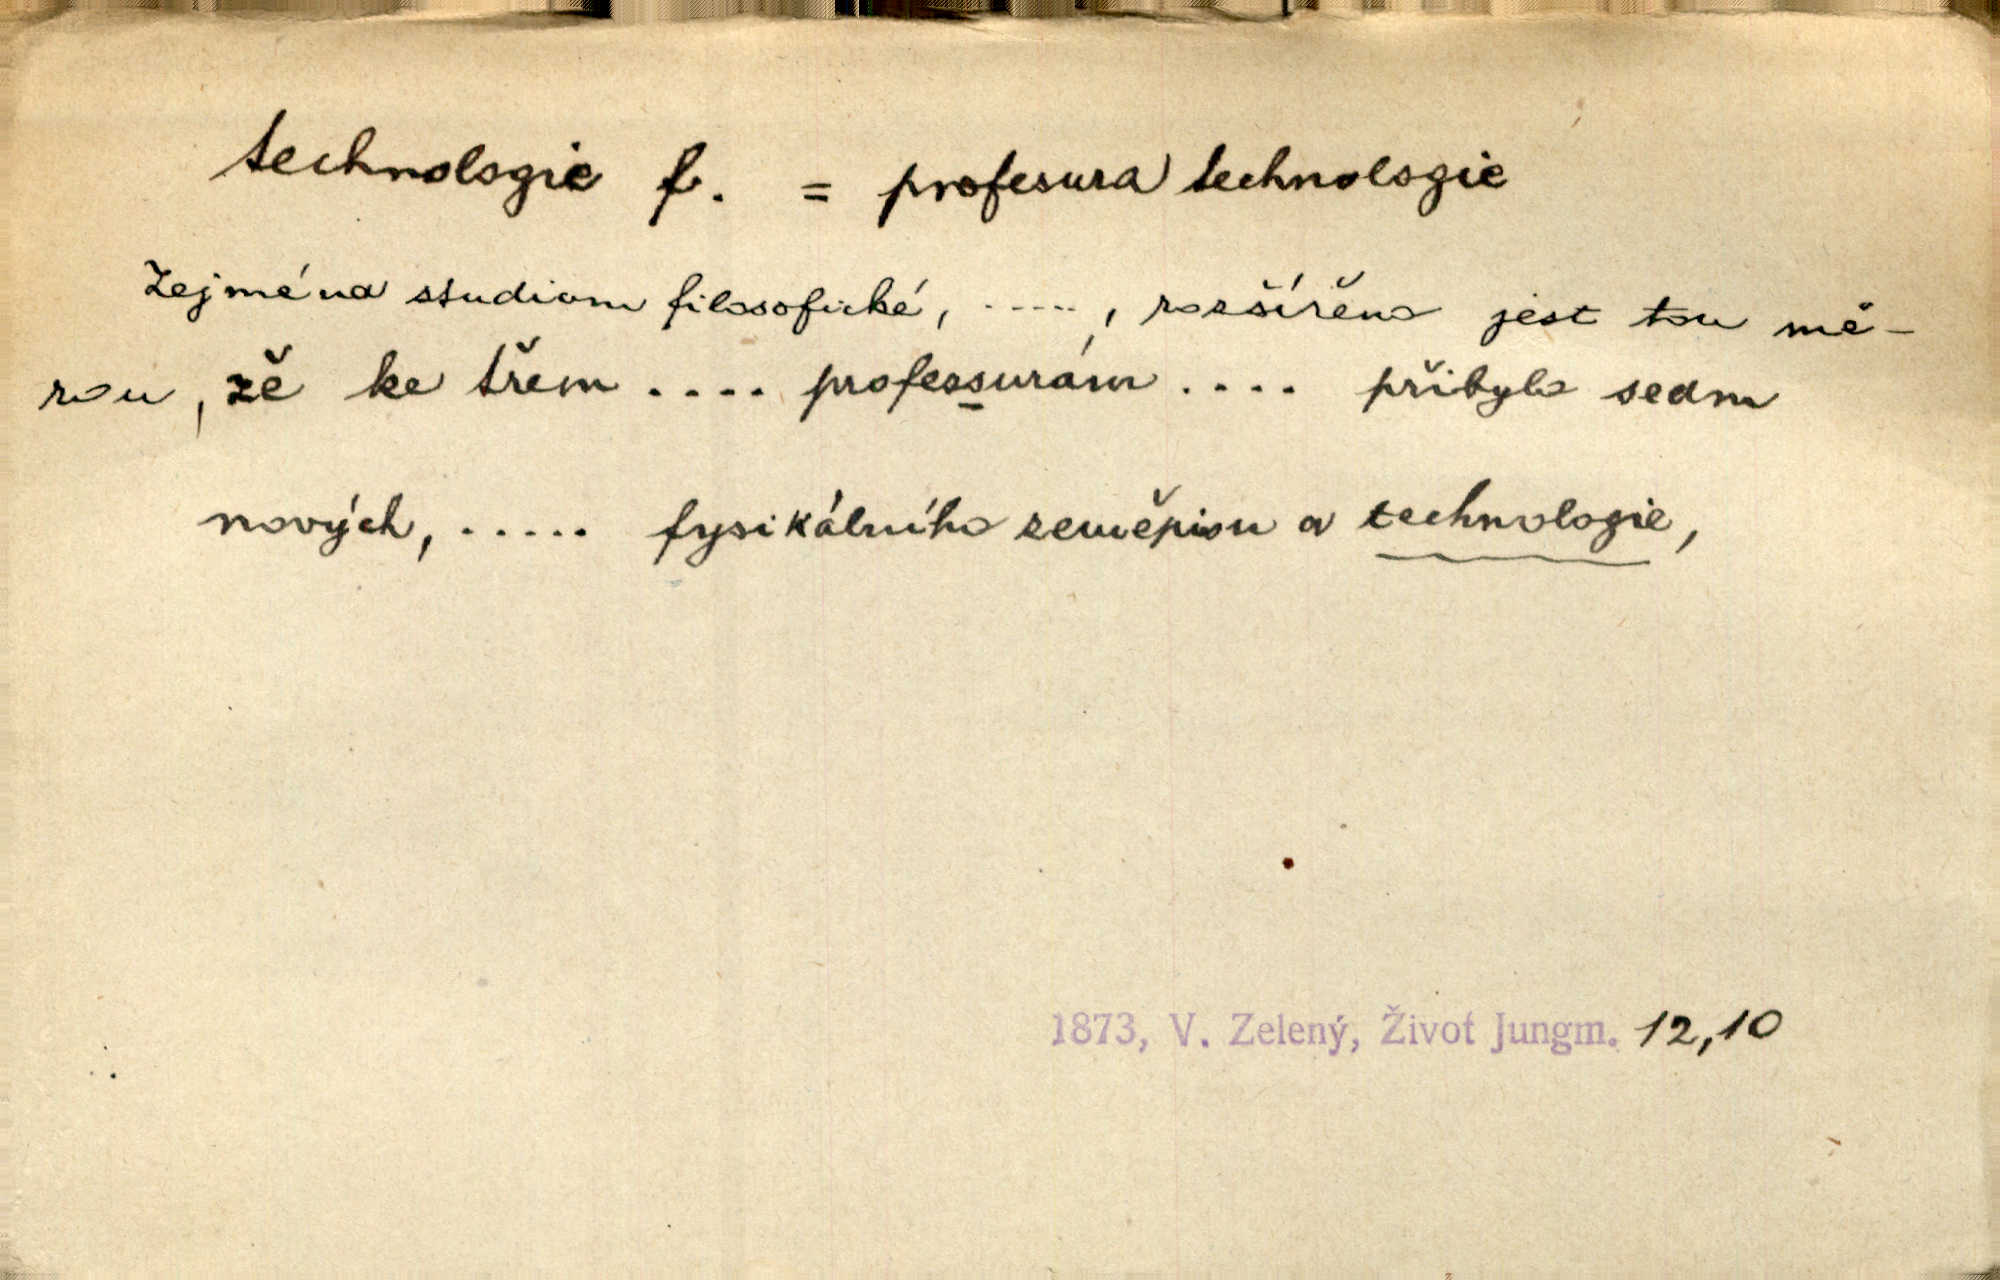 technologie f. = profesura technologie
Zejména studium filosofické, ....., rozšířeno jest tou mě-
rou, že ke třem .... professurám .... přibylo sedm
nových, ..... fysikálního zeměpisu a technologie,
1873, V. Zelený, Život Jungm. 12,10